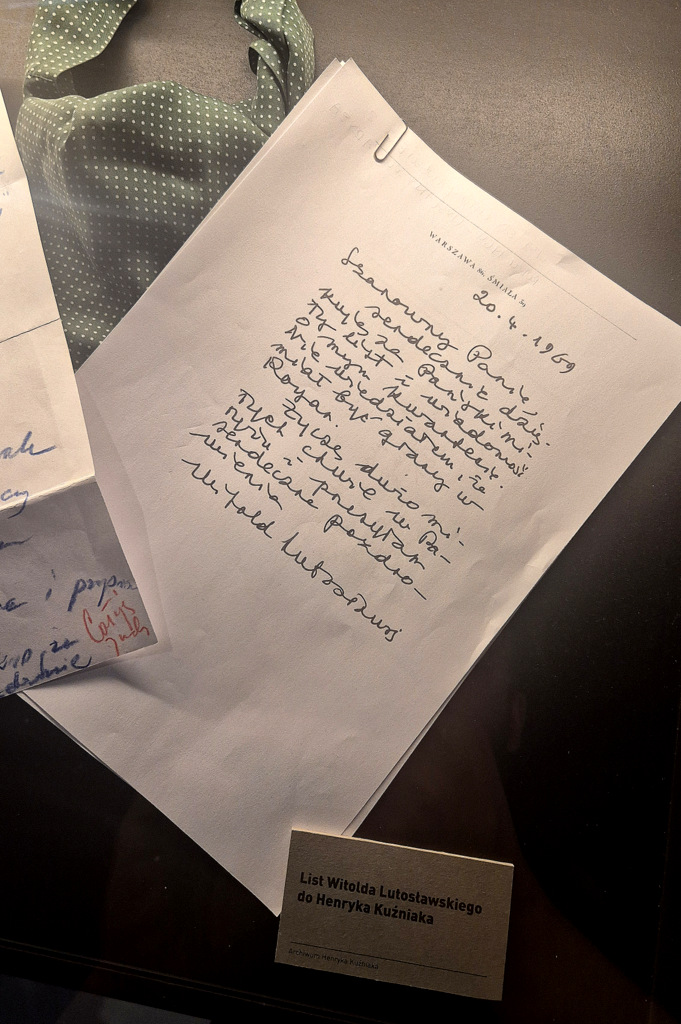 WARSZAWA 86, ŚMIAŁA 39
20.4.1969
Szanowny Panie
serdecznie dzię-
kuję za Pański mi-
ły list i wiadomość
o mym kwartecie.
Nie wiedziałem, że
miał być grany w
Royan.
Życzę dużo mi-
łych chwil w Pa-
ryżu i przesyłam
serdeczne pozdro-
wienia
Witold Lutosławski
List Witolda Lutosławskiego
do Henryka Kuźniaka
Archiwum Henryka Kuźniaka